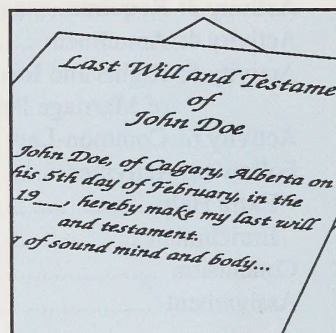 Last Will and Testame
of
John Doe
John Doe, of Calgary, Alberta on
his 5th day of February, in the
19__, hereby make my last will
and testament.
of sound mind and body...